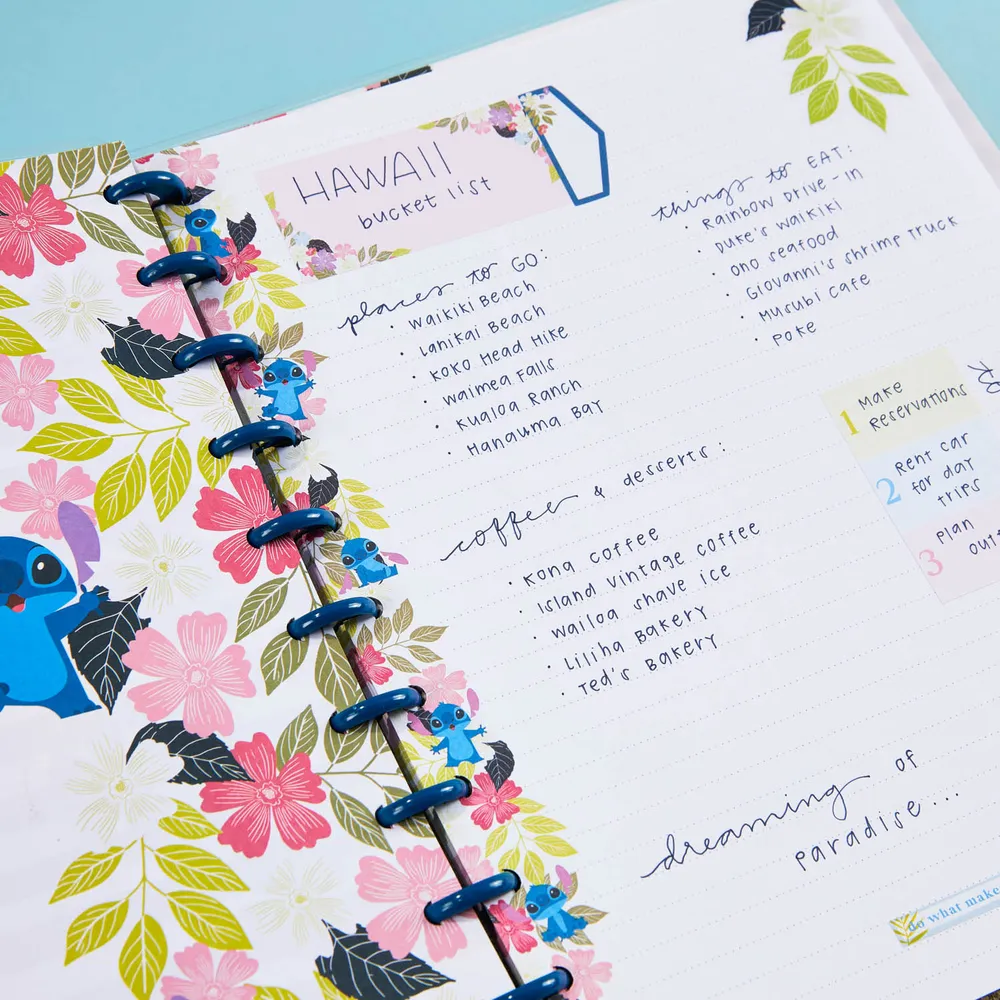 HAWAII
bucket list
places to GO:
• Waikiki Beach
• Lanikai Beach
• Koko Head Hike
• Waimea Falls
• Kualoa Ranch
• Hanauma Bay
things to EAT:
• Rainbow Drive-in
• Duke's Waikiki
• Ono Seafood
• Giovanni's Shrimp Truck
• Musubi Cafe
• Poke
coffee & desserts:
• Kona Coffee
• Island Vintage Coffee
• Wailoa Shave Ice
• Liliha Bakery
• Ted's Bakery
1 Make
Reservations
2 Rent car
for day
trips
3 Plan
dreaming of
paradise...
do what make